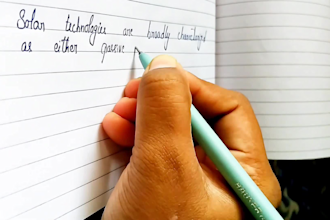 Solar technologies are broadly characterized
as either passive